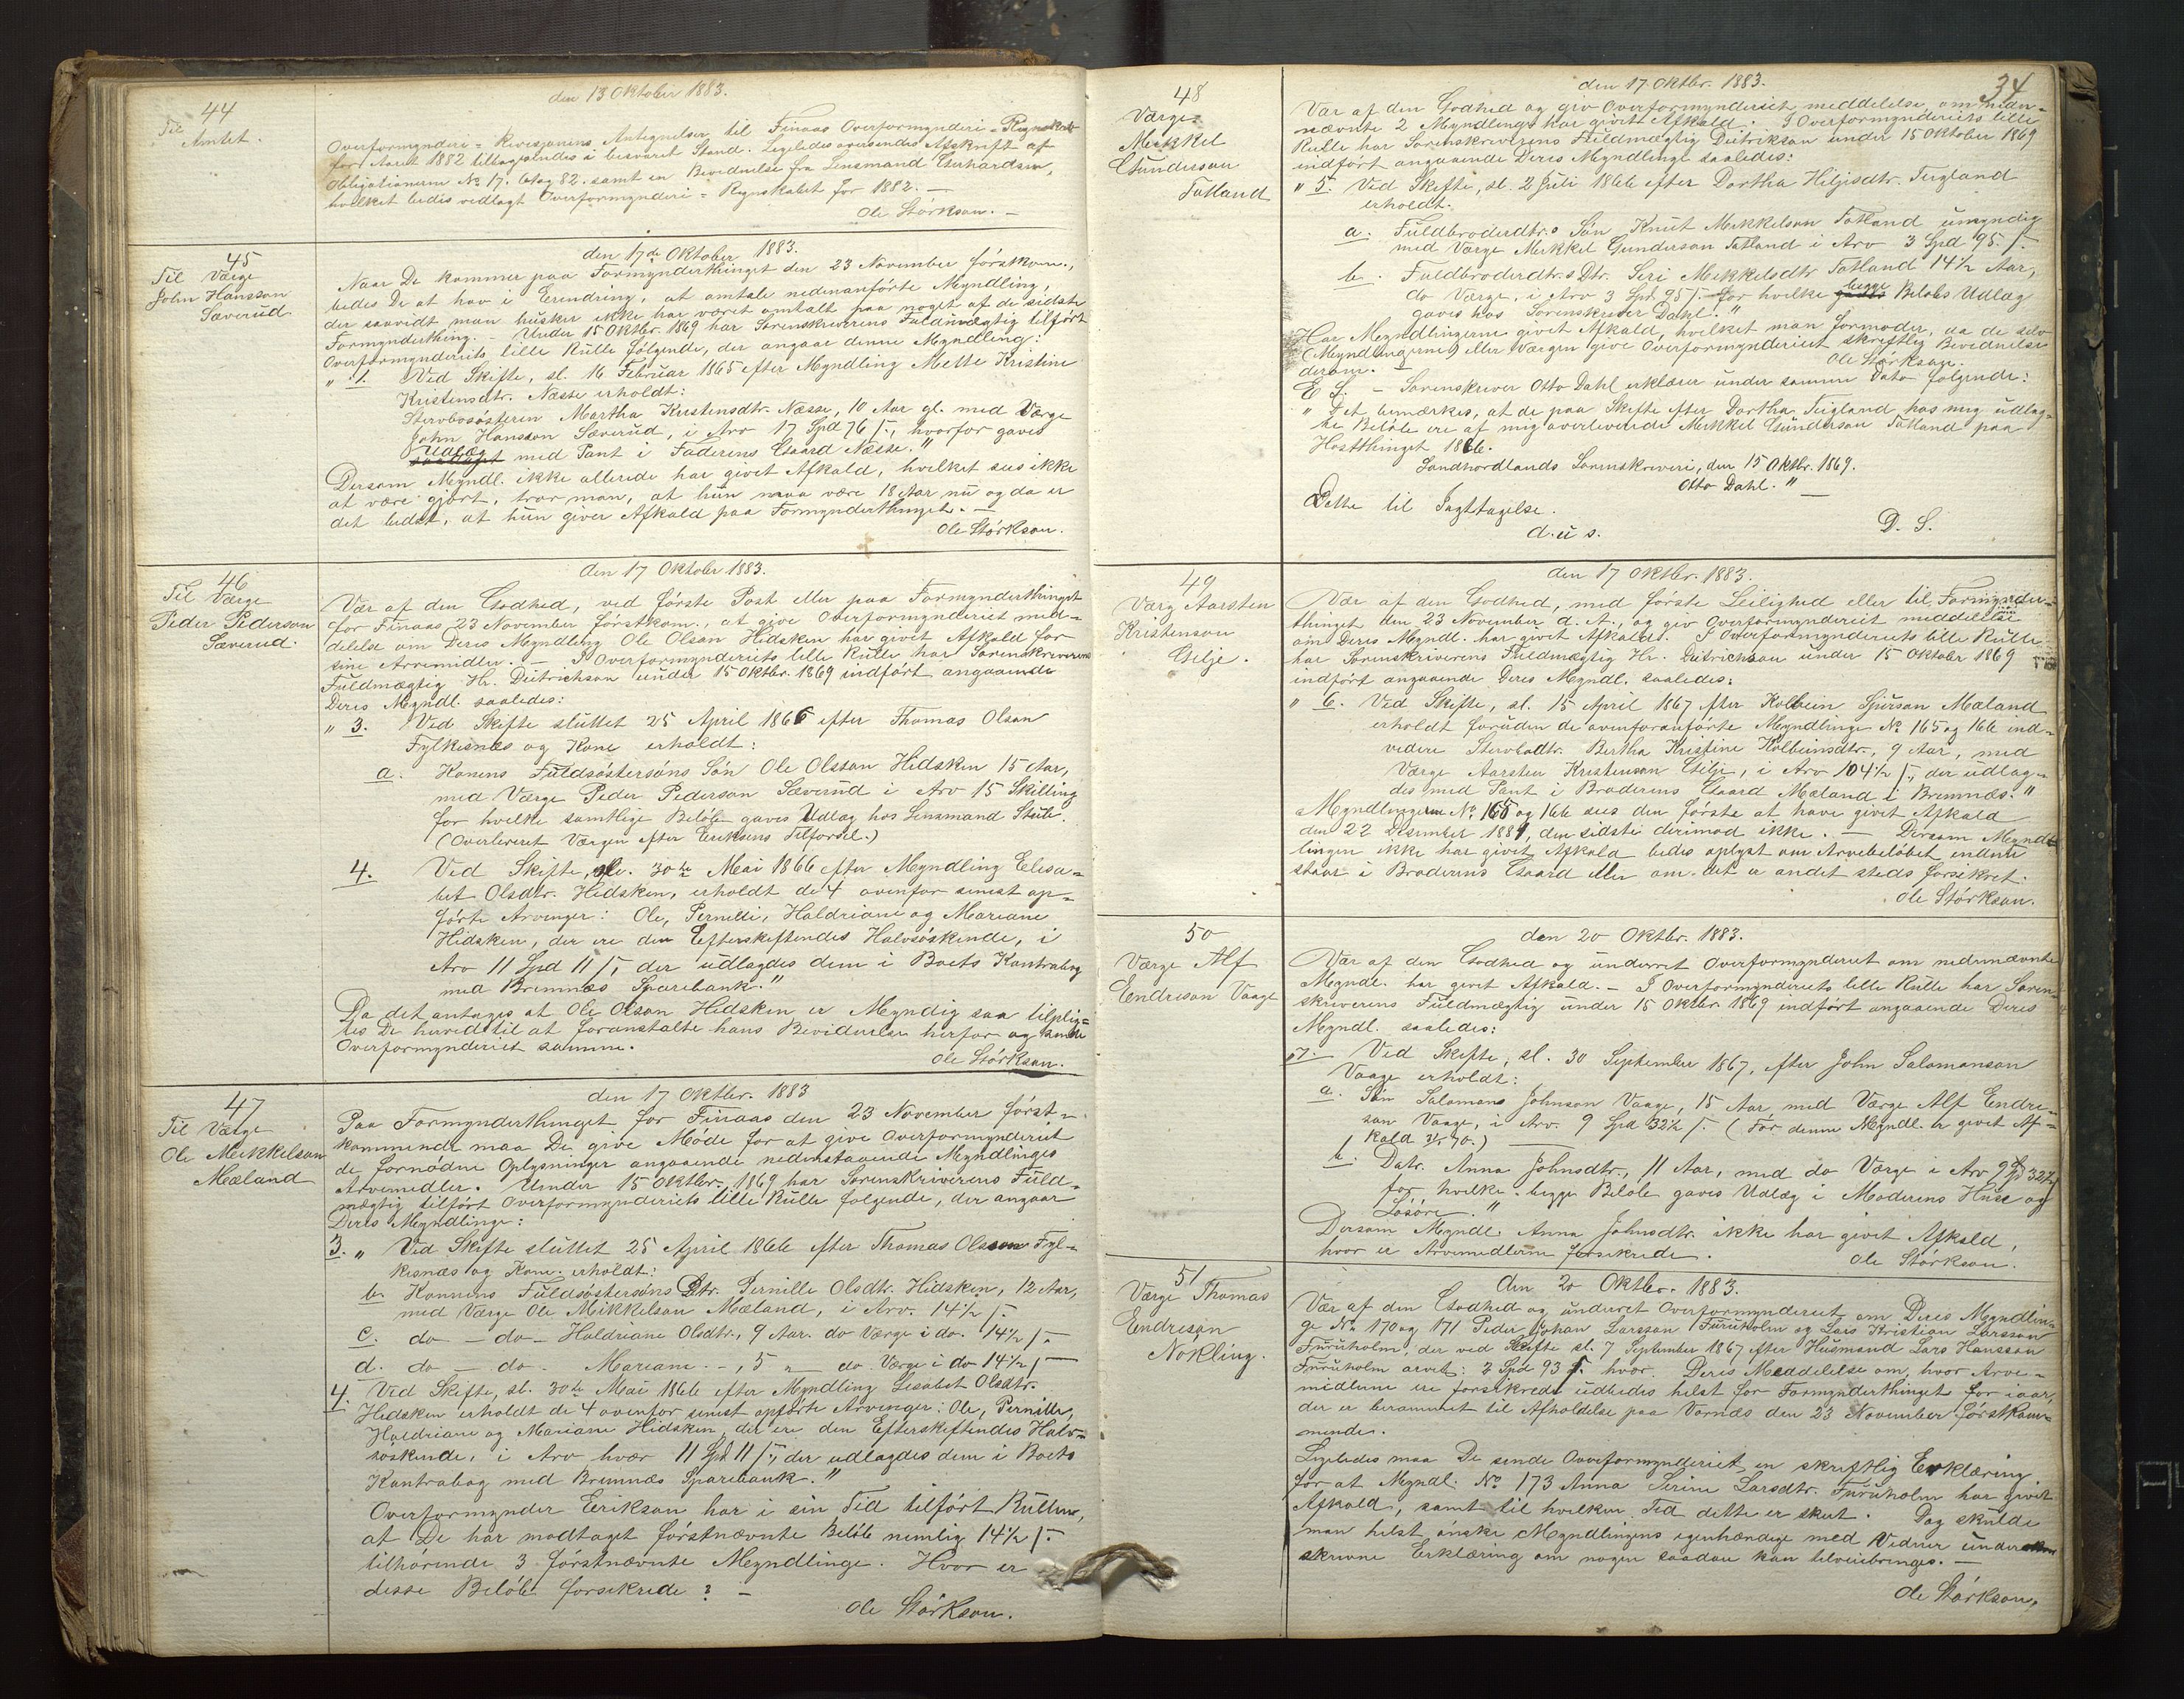 44
Til
Amtet.
den 13 Oktober 1883.
Overformynderi-Revisjonens Antegnelser til Finaas Overformynderi-Regnskab
for Aaret 1882 tilbagesendes i besvaret Stand. Ligeledes oversendes Afskrift af
Obligationerne No 17, 61 og 82. samt en Bevidnelse fra Lensmand Gerhardsen,
hvilket bedes vedlagt Overformynderi-Regnskabet for 1882. —
Ole Störkson. —
45
Til Værge
John Hansson
Sæverud
den 17de Oktober 1883.
Naar De kommer paa Formynderthinget den 23 November förstkom.,
bedes De at hav i Erendring, at omtale nedenanförte Myndling,
der saavidt man husker ikke har været omtalt paa noget af de sidste
Formynderthing. – Under 15 Oktbr. 1869 har Sorenskriverens Fuldmægtig tilfört
Overformynderiets lille Rulle fölgende, der angaar denne Myndling:
" 1. Ved Skifte, sl. 16 Februar 1865 efter Myndling Mette Kristine
Kristensdtr. Næsse erholdt:
Stervbosösteren Martha Kristensdtr. Næsse, 10 Aar gl. med Værge
John Hansson Sæverud, i Arv 17 Spd 76 ſ., hvorfor gaves
Udlæg
med Pant i Faderens Gaard Næsse."
Dersom Myndl. ikke allerede har givet Afkald, hvilket sees ikke
at være gjort, tror man, at hun maa være 18 Aar nu og da er
det bedst, at hun giver Afkald paa Formynderthinget. —
Ole Störkson.
46
Til Værge
Peder Pederson
Sæverud.
den 17 Oktober 1883.
Vær af den Godhed, ved förste Post eller paa Formynderthinget
for Finaas 23 November förstkom., at give Overformynderiet med-
delelse om Deres Myndling Ole Olson Hidsken har givet Afkald for
sine Arvemidler. – I Overformynderiets lille Rulle har Sorenskriverens
Fuldmægtig Hr. Deitrichson under 15 Oktbr. 1869 indfört angaaende
Deres Myndl. saaledes:
" 3. Ved Skifte sluttet 25 April 1866 efter Thomas Olson
Fylkesnæs og Kone erholdt:
a. Konens Fuldsöstersöns Sön Ole Olsson Hidsken 15 Aar,
med Værge Peder Pederson Sæverud i Arv 15 Skilling
for hvilke samtlige Belöb gaves Udlæg hos Lensmand Stub.
(Overleveret Værgen efter Eriksens Tilförsel.)
4. Ved Skifte, sl. 30te Mai 1866 efter Myndling Elisa-
bet Olsdtr. Hidsken, erholdt de 4 ovenfor senest op-
förte Arvinger: Ole, Pernille, Haldriane og Mariane
Hidsken, der ere den Efterskiftendes Halvsöskende, i
Arv 11 Spd 11 ſ., der udlagdes dem i Boets Kontrabog
med Bremnæs Sparebank."
Da det antages at Ole Olson Hidsken er Myndig saa tilplig-
tes De herved til at foranstalte hans Bevidnelse herfor og sende
Overformynderiet samme.
Ole Störkson.
47
Til Værge
Ole Mekkelson
Mæland
den 17 Oktbr. 1883
Paa Formynderthinget for Finaas den 23 November först-
kommende maa De give Möde for at give Overformynderiet
de fornödne Oplysninger angaaende nedenstaaende Myndlinges
Arvemidler. Under 15 Oktbr. 1869 har Sorenskriverens Fuld-
mægtig tilfört Overformynderiets lille Rulle fölgende, der angaar
Deres Myndlinge:
3. " Ved Skifte sluttet 25 April 1866 efter Thomas Olsson Fyl-
kesnæs og Kone erholdt:
b. Konnens Fuldsöstersöns Dtr. Pernille Olsdtr. Hidsken, 12 Aar,
med Værge Ole Mikkelson Mæland, i Arv. 14½ ſ.
c. do — do — Haldriane Olsdtr., 9 Aar. do Værge i do. 14½ ſ.
d. do — do. Mariane. – , 5 " do. Værge i do 14½ ſ.
4. Ved Skifte, sl. 30te Mai 1866 efter Myndling Lisabet Olsdtr.
Hidsken erholdt de 4 ovenfor senest opförte Arvenger: Ole, Pernille,
Haldriane og Mariane Hidsken, der ere den Efterskiftendes Halv-
söskende, i Arv hver 11 Spd 11 ſ., der udlagdes dem i Boets
Kontrabog med Bremnæs Sparebank."
Overformynder Eerikson har i sin Tid tilfört Rullen,
at De har modtaget förstnævnte Belöb nemlig 14½ ſ.
tilhörende 3 förstnævnte Myndlinge. Hvor er
disse Belöb forsikrede? —
Ole Störkson.
34
48
Værge
Mekkel
Gunderson
Tatland
den 17 Oktbr. 1883.
Vær af den Godhed og giv Overformynderiet meddelelse, om neden-
nævnte 2 Myndlinge har givet Afkald. I Overformynderiets lille
Rulle har Sorenskriverens Fuldmægtig Dietrikson under 15 Oktober 1869
indfört angaaende Deres Myndlinge saaledes:
" 5. Ved Skifte, sl. 2 Juli 1866 efter Dortha Hiljesdtr. Tergland
erholdt.
a. Fuldbroderdtrs Sön Knut Mekkelson Tatland umyndig
med Værge Mekkel Gunderson Tatland i Arv 3 Spd 95. ſ.
b. Fuldbroderdtrs Dtr. Seri Mekkelsdtr Tatland 14½ Aar,
do Værge, i Arv 3 Spd 95 ſ. for hvilke begge Belöbs Udlæg
gaves hos Sorenskriver Dahl."
Har Myndlingerne givet Afkald, hvilket man formoder, da de selv
(Myndlingerne) eller Værgen give Overformynderiet skriftlig Bevidnelse
derom. –
Ole Störkson.
E S. – Sorenskriver Otto Dahl erklærer under samme Dato fölgende:
" Det bemærkes, at de paa Skifte efter Dortha Teigland hos mig udlag-
te Belöb ere af mig overleverede Mekkel Gunderson Tatland paa
Höstthinget 1866.
Söndhordlands Sorenskriveri, den 15 Oktbr. 1869.
Otto Dahl." —
Dette til Iagttagelse.
d. u s.
D. S.
49
Værg Aarsten
Kristenson
Gilje.
den 17 Oktbr. 1883.
Vær af den Godhed, med förste Leilighed eller til Formynder-
thinget den 23 November d. A., og giv Overformynderiet meddelelse
om Deres Myndl. har givet Afkald. I Overformynderiets lille Rulle
har Sorenskriverens Fuldmægtig Hr. Deitrichson under 15 Oktober 1869
indfört angaaende Deres Myndl. saaledes:
" 6. Ved Skifte, sl. 15 April 1867 efter Kolbein Sjurson Mæland
erholdt foruden de ovenforanförte Myndlinge No 165 og 166 end-
videre Stervbodtr. Bertha Kristine Kolbeinsdtr., 9 Aar, med
Værge Aarsten Kristenson Gilje, i Arv 104½ ſ., der udlag-
des med Pant i Broderens Gaard Mæland i Bremnæs."
Myndlingerne No 165 og 166 sees den förste at have givet Afkald
den 22 Desember 1881, den sidste derimod ikke. — Dersom Mynd-
lingen ikke har givet Afkald bedes oplyst om Arvebelöbet endnu
staar i Broderens Gaard eller om det er andet steds forsikret.
Ole Störkson.
50
Værge Alf
Endreson Vaage
den 20 Oktbr. 1883.
Vær af den Godhed og underret Overformynderiet om nedennævnte
Myndl. har givet Afkald. – I Overformynderiets lille Rulle har Soren-
skriverens Fuldmægtig under 15 Oktbr. 1869 indfört angaaende Deres
Myndl. saaledes:
"7. Ved Skifte, sl. 30 September 1867, efter John Salomonson
Vaage erholdt:
a. Sön Salomons Johnson Vaage, 15 Aar, med Værge Alf Endre-
son Vaage, i Arv. 9 Spd 32½ ſ. (For denne Myndl. er givet Af-
kald 3/5 70.)
b. Datr. Anna Johnsdtr., 11 Aar, med do Værge i Arv 9 Spd 32½
for hvilke begge Belöb gaves Udlæg i Moderens Huse og
Lösöre."
Dersom Myndl. Anna Johnsdtr. ikke har givet Afkald,
hvor er Arvemidlerne forsikrede.
Ole Störkson.
51
Værge Thomas
Endreson
Nokling.
den 20 Oktbr. 1883.
Vær af den Godhed og underret Overformynderiet om Deres Myndlin-
ge No 170 og 171 Peder Johan Larsson Furuholm og Lars Kristian Larsson
Furuholm, der ved Skifte sl. 7 September 1867 efter Husmand Lars Hansson
Furuholm arvet: 2 Spd 93 ſ. hver. Deres Meddelelse om, hvor Arve-
midlerne ere forsikrede udbedes helst for Formynderthinget for iaar,
der er berammet til Afholdelse paa Vornæs den 23 November förstkom-
mende.
Ligeledes maa De sende Overformynderiet en skriftlig Erklæring
for at Myndl. No 173 Anna Serine Larsdtr. Furuholm har givet
Afkald, samt til hvilken Tid dette er skeet. Dog skulde
man helst önske Myndlingens egenhændige med Vidner under
skrevne Erklæring om nogen saadan kan tilveiebringes. —
Ole Störkson.